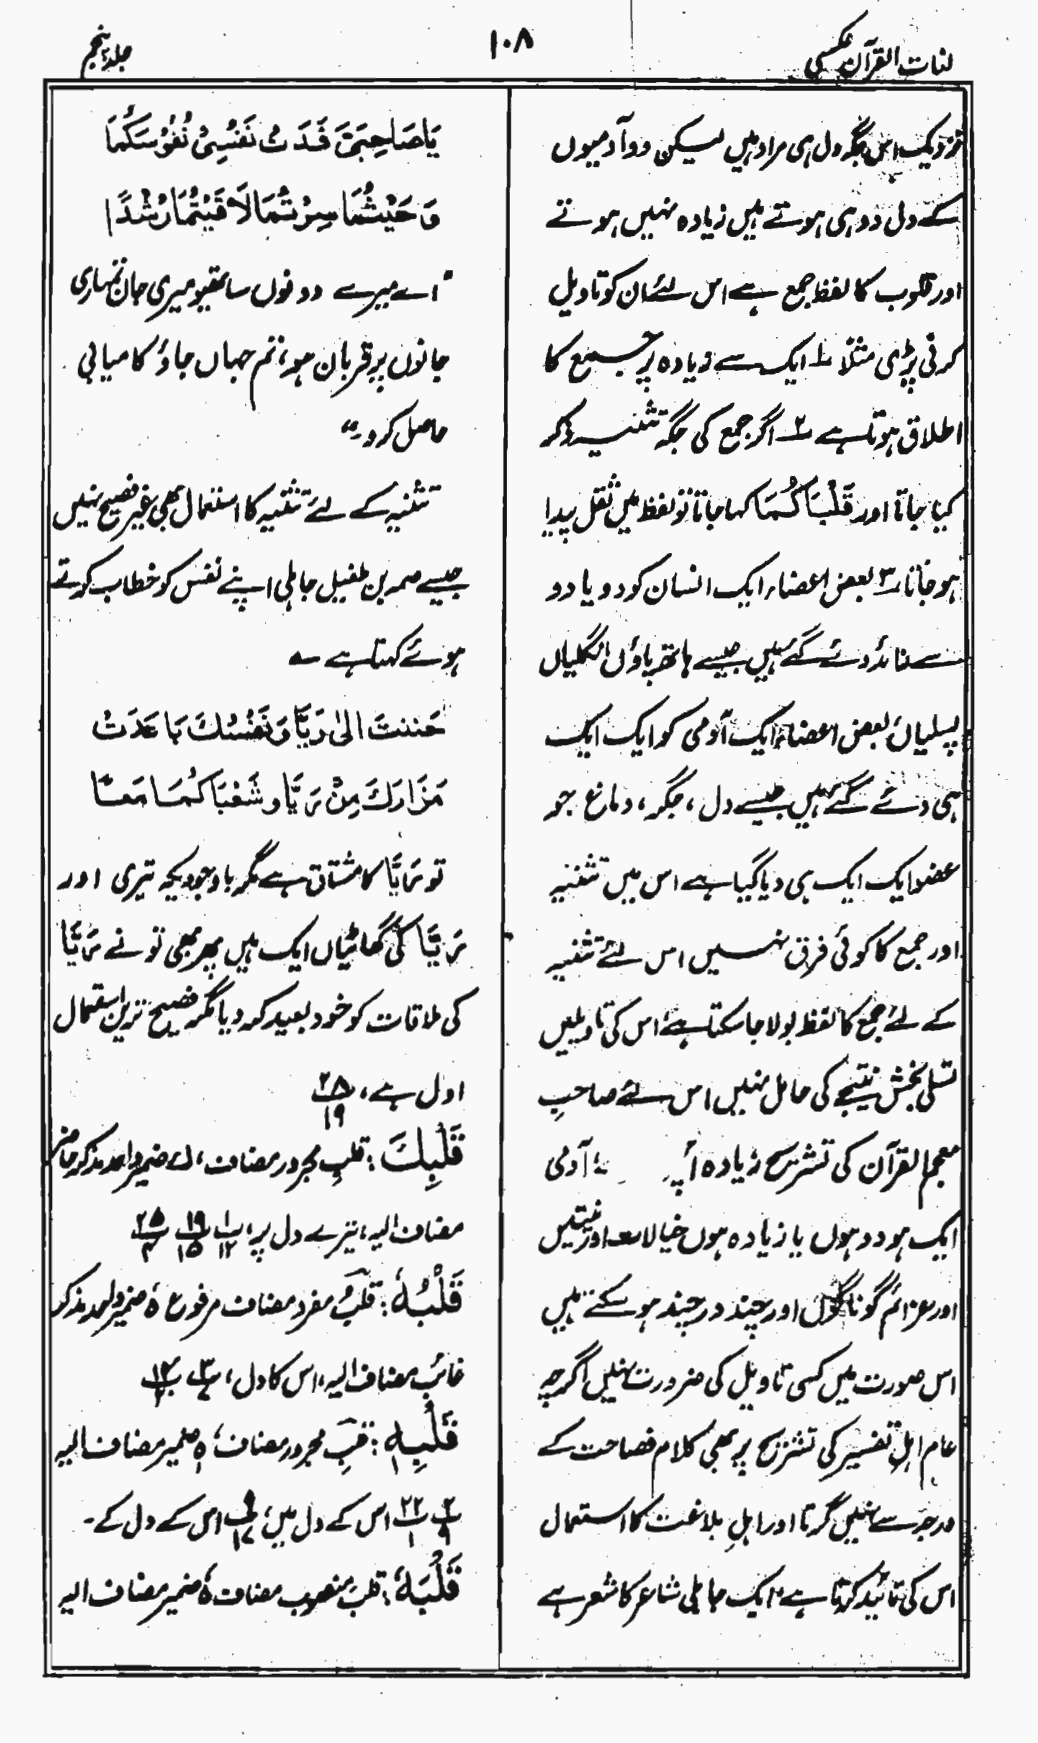 لغات القرآن عکسی
۱۰۸
جلد پنجم
نزدیک اس جگہ دل ہی مراد ہیں لیکن دو آدمیوں
کے دل دو ہی ہوتے ہیں زیادہ نہیں ہوتے
اور قلوب کا لفظ جمع ہے اس لئے ان کو تاویل
کرنی پڑی مثلاً ۱ ایک سے زیادہ پر جمع کا
اطلاق ہوتا ہے ۲ اگر جمع کی جگہ تثنیہ ذکر
کیا جاتا اور قَلْبَاكُمَا کہا جاتا تو لفظ میں ثقل پیدا
ہو جاتا ۳ بعض اعضاء ایک انسان کو دو یا دو
سے زائد دئے گئے ہیں جیسے ہاتھ پاؤں انگلیاں
پسلیاں بعض اعضاء ایک آدمی کو ایک ایک
ہی دئے گئے ہیں جیسے دل، جگر، دماغ جو
عضو ایک ایک ہی دیا گیا ہے اس میں تثنیہ
اور جمع کا کوئی فرق نہیں اس لئے تثنیہ
کے لئے جمع کا لفظ بولا جا سکتا ہے، اس کی تاویلیں
تسلی بخش نتیجے کی حامل نہیں اس لئے صاحبِ
معجم القرآن کی تشریح زیادہ آدمی
ایک ہو دو ہوں یا زیادہ ہوں خیالات اور نیتیں
اور عزائم گوناگوں اور چند در چند ہو سکتے ہیں
اس صورت میں کسی تاویل کی ضرورت نہیں اگرچہ
عام اہلِ تفسیر کی تشریح پر بھی کلام فصاحت کے
درجہ سے نہیں گرتا اور اہلِ بلاغت کا استعمال
اس کی تائید کرتا ہے، ایک جاہلی شاعر کا شعر ہے
يَا صَاحِبَيَّ فَدَتْ نَفْسِيْ نُفُوْسَكُمَا
وَحَيْثُمَا سِرْتُمَا لَاقَيْتُمَا رُشْدًا
"اے میرے دونوں ساتھیو میری جان تمہاری
جانوں پر قربان ہو، تم جہاں جاؤ کامیابی
حاصل کرو۔"
تثنیہ کے لئے تثنیہ کا استعمال بھی غیر فصیح نہیں
جیسے صمہ بن طفیل جاہلی اپنے نفس کو خطاب کرتے
ہوئے کہتا ہے ؎
حَنَنْتَ اِلیٰ رَيَّا وَنَفْسُكَ بَاعَدَتْ
مَزَارَكَ مِنْ رَيَّا وَشَعْبَاكُمَا مَعًا
تو رَیَّا کا مشتاق ہے مگر باوجودیکہ تیری اور
رَیَّا کی گھاٹیاں ایک ہیں پھر بھی تو نے رَیَّا
کی ملاقات کو خود بعید کر دیا مگر فصیح ترین استعمال
اول ہے، ۲۸/۱۹
قَلْبِكَ: قلبِ مجرور مضاف، ك ضمیر واحد مذکر حاضر
مضاف الیہ، تیرے دل پر، ۱/۱۲ ۱۹/۱۵ ۲۵/۴
قَلْبُهٗ: قلبُ مفرد مضاف مرفوع هٗ ضمیر واحد مذکر
غائب مضاف الیہ، اس کا دل،
قَلْبِهٖ: قلبِ مجرور مضاف، هٖ ضمیر مضاف الیہ
اس کے دل میں، اس کے دل کے۔
قَلْبَهٗ: قلبَ منصوب مضاف هٗ ضمیر مضاف الیہ